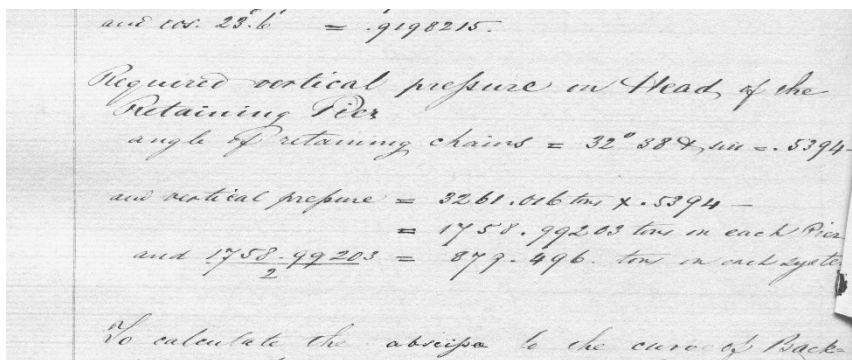 and cos. 23°.6' = .9198215.
Required vertical pressure on Head of the
Retaining Pier
angle of retaining chains = 32° 38' & sin = .5394
and vertical pressure = 3261.016 tons × .5394 —
= 1758.99203 tons on each Pier
and 1758.99203 / 2 = 879.496. tons on each syste
To calculate the abscissa to the curve of Back-